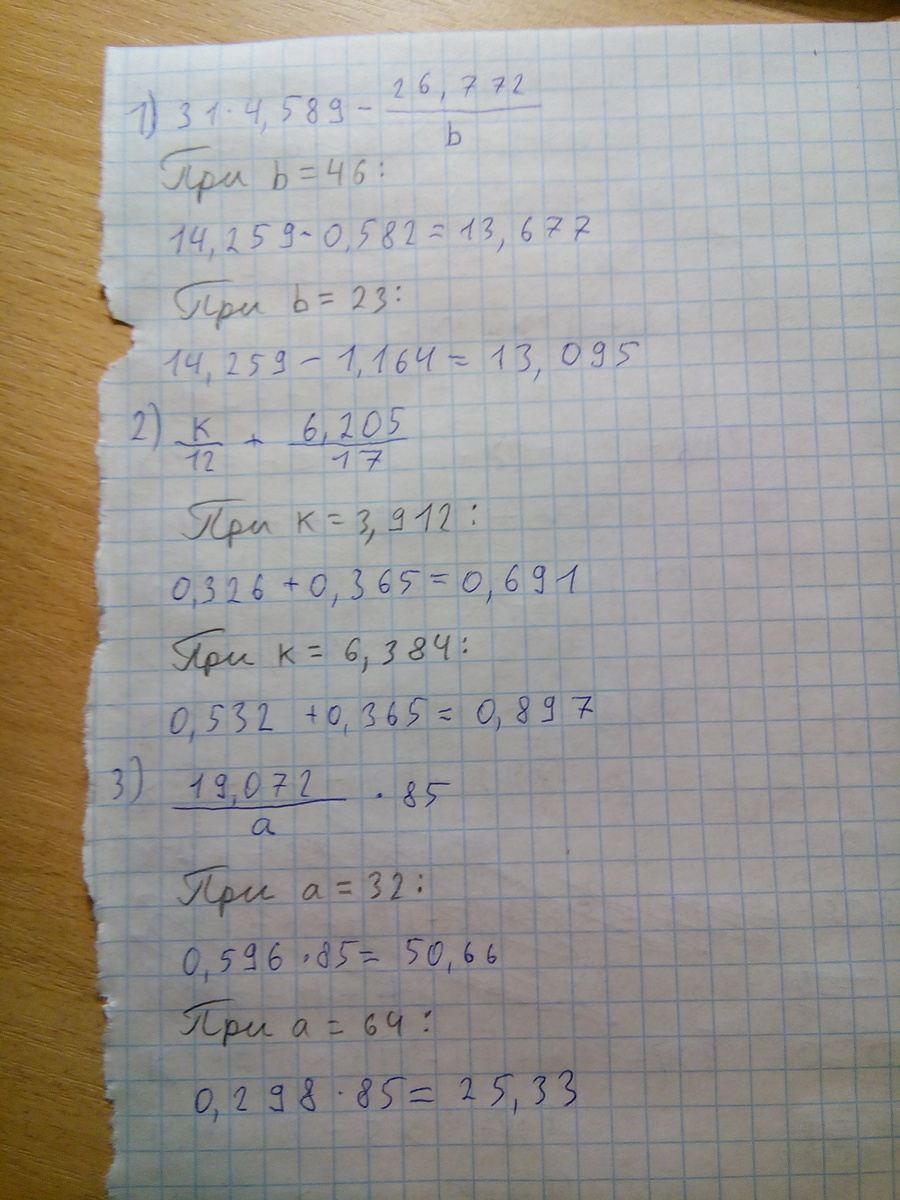 1) 31·4,589 - 26,772/b
При b = 46:
14,259 - 0,582 = 13,677
При b = 23:
14,259 - 1,164 = 13,095
2) к/12 + 6,205/17
При к = 3,912:
0,326 + 0,365 = 0,691
При к = 6,384:
0,532 + 0,365 = 0,897
3) 19,072/a · 85
При a = 32:
0,596 · 85 = 50,66
При a = 64:
0,298 · 85 = 25,33